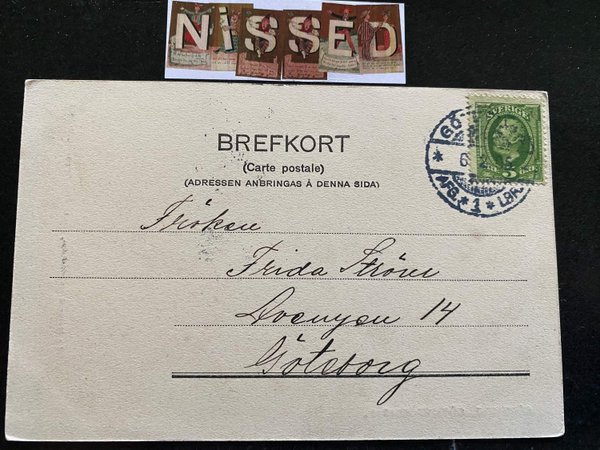 NISSED
BREFKORT
(Carte postale)
(ADRESSEN ANBRINGAS Å DENNA SIDA)
SVERIGE
5
GÖ
6
AFG. * 1 * LBR.
Fröken
Frida Ströer
Avenyen 14
Göteborg